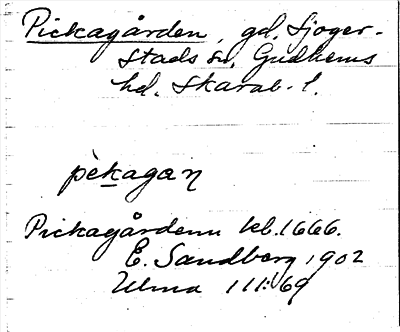 Pickagården, gd, Sjoger-
stads sn, Gudhems
hd. Skarab. l.
pèkagan
Pickagårdenn kb. 1666.
E. Sandberg 1902
Ulma 111:69